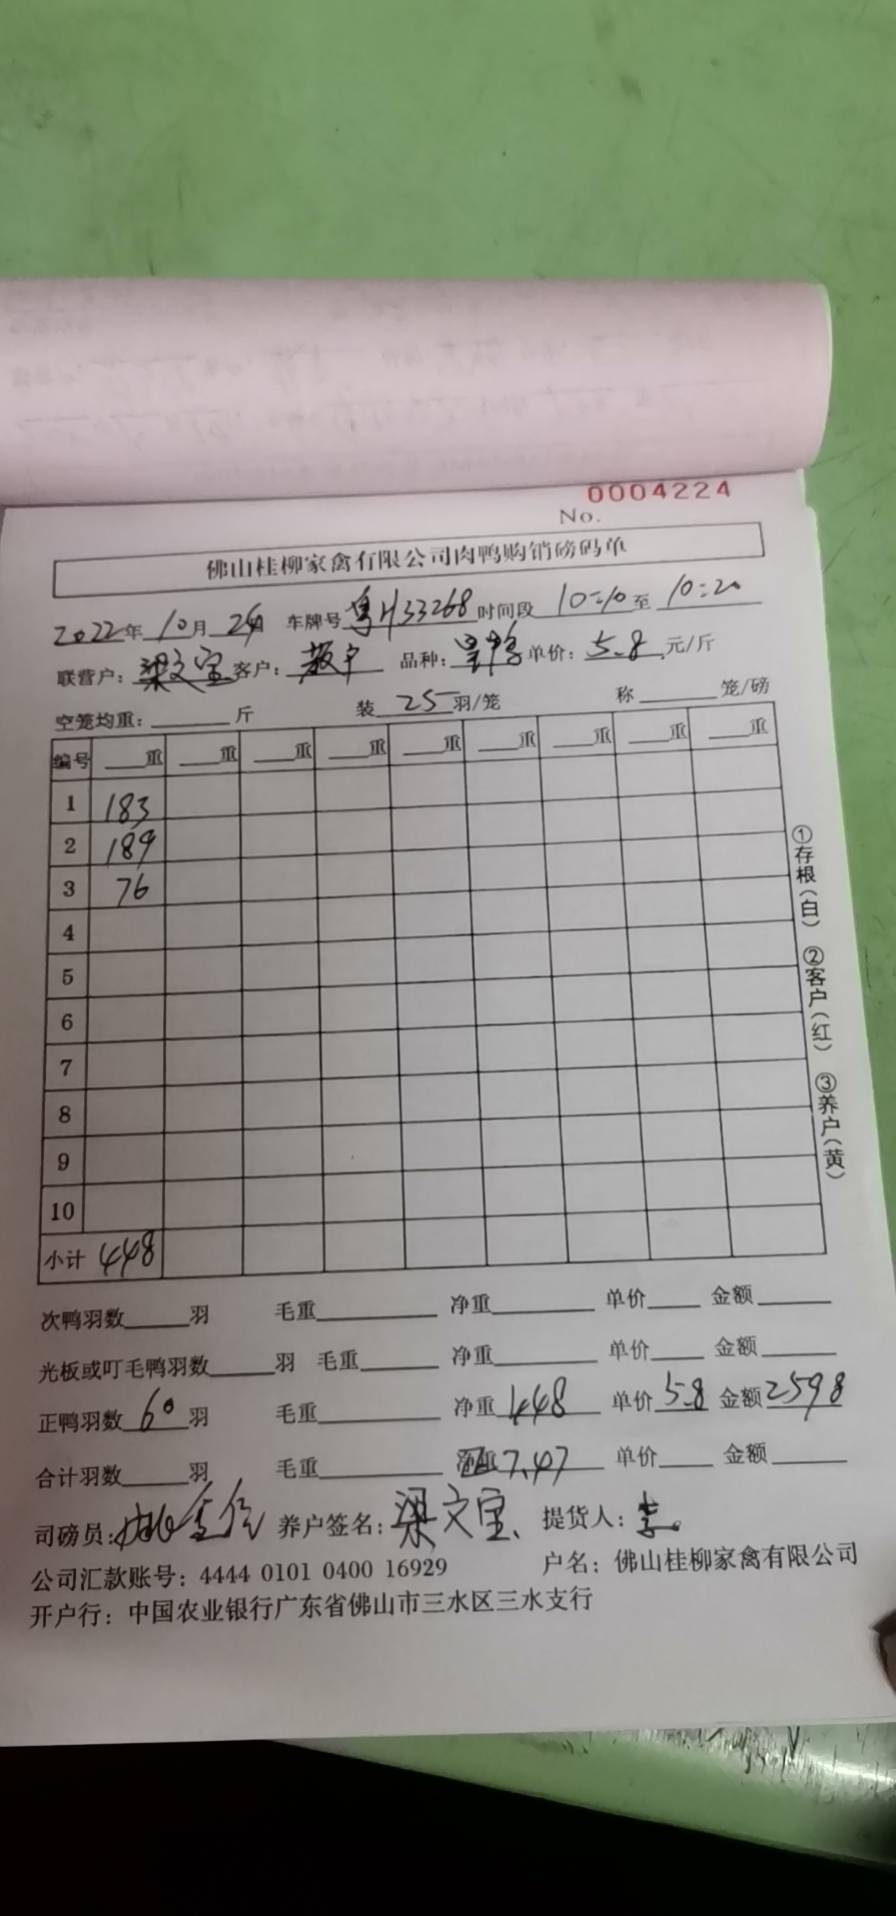 0004224
No.
佛山桂柳家禽有限公司肉鸭购销磅码单
2022年10月24日 车牌号粤H33268时间段10:10至10:20
联营户：梁文宝客户：散户 品种：单价：5.8元/斤
空笼均重：斤 装25羽/笼 称笼/磅
编号 重 重 重 重 重 重 重 重 重
1 183
2 189
3 76
4
5
6
7
8
9
10
小计 448
①存根（白） ②客户（红） ③养户（黄）
次鸭羽数羽 毛重 净重 单价 金额
光板或叮毛鸭羽数羽 毛重 净重 单价 金额
正鸭羽数60羽 毛重 净重448 单价5.8 金额2598
合计羽数羽 毛重 7.47 单价 金额
司磅员： 养户签名：梁文宝 提货人：李
公司汇款账号：4444 0101 0400 16929 户名：佛山桂柳家禽有限公司
开户行：中国农业银行广东省佛山市三水区三水支行